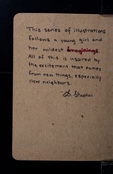 This series of illustrations
follows a young girl and
her wildest
All of this is inspired by
the excitement that comes
from new things, especially
new neighbors.